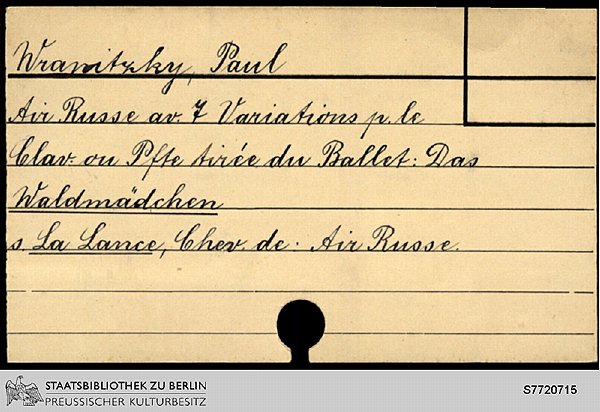 Wranitzky, Paul
Air Russe av. 7 Variations p. le
Clav. ou Pfte tirée du Ballet: Das
Waldmädchen
s. La Lance, Chev. de: Air Russe.
STAATSBIBLIOTHEK ZU BERLIN
PREUSSISCHER KULTURBESITZ
S7720715